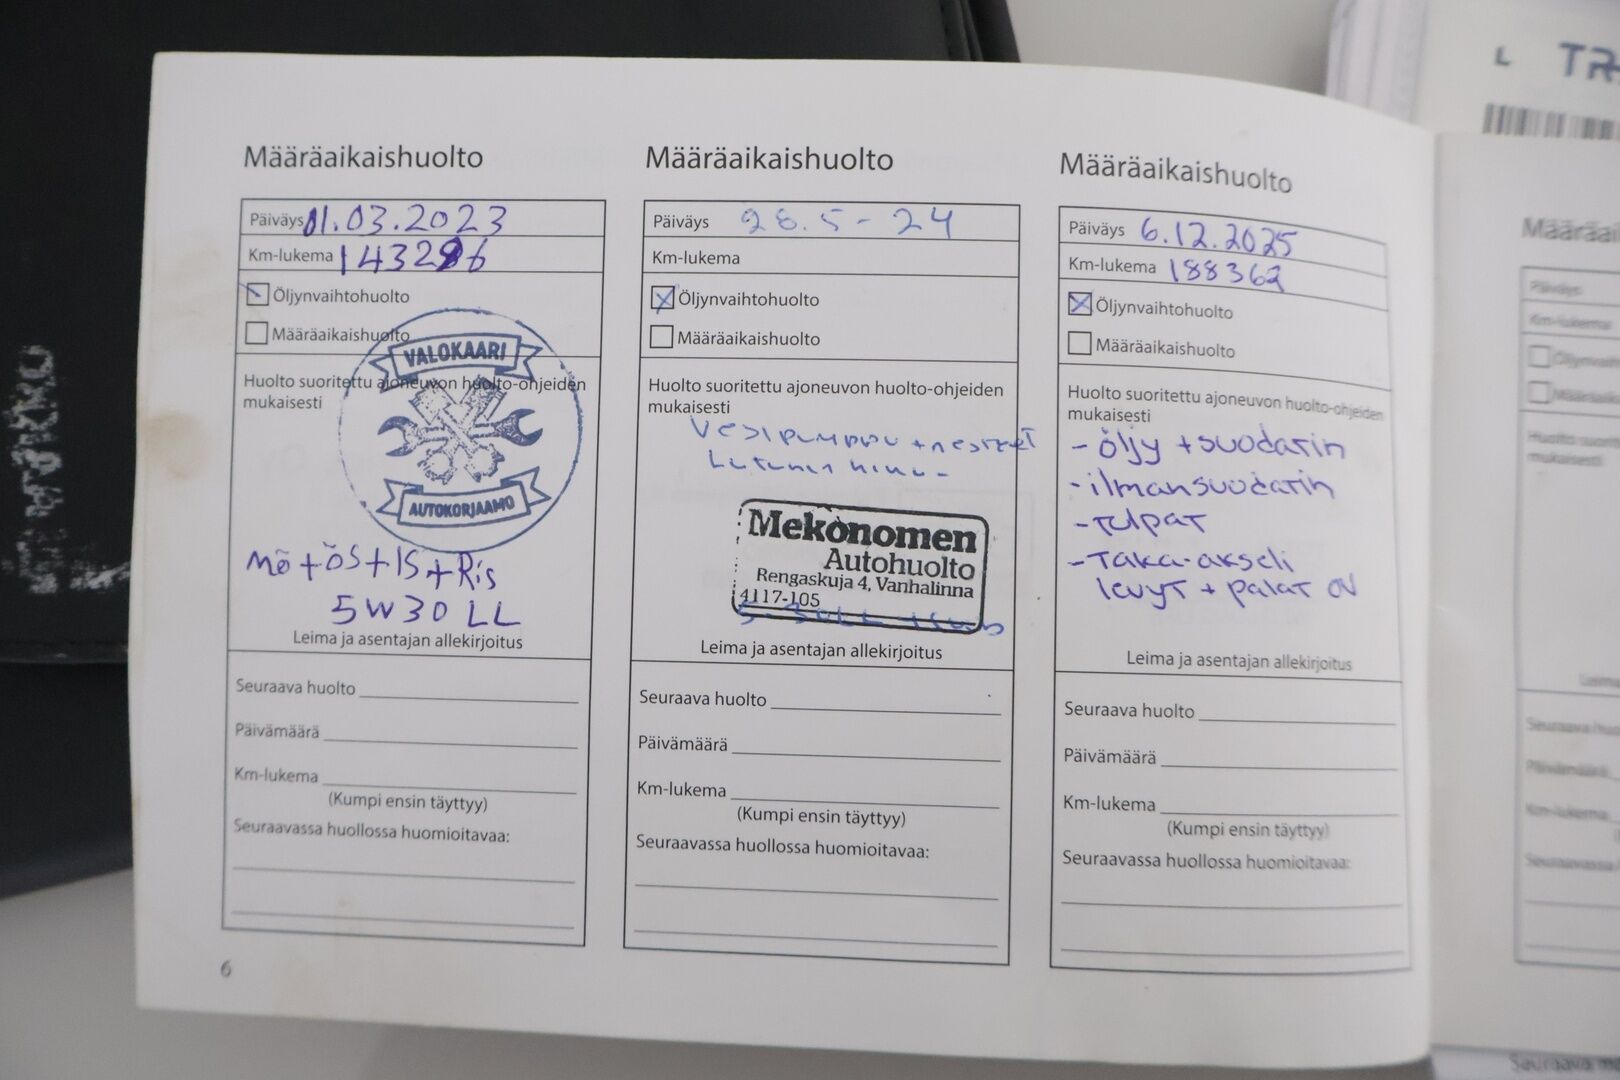 TR
Määräaikaishuolto
Päiväys 01.03.2023
Km-lukema 143286
Öljynvaihtohuolto
Määräaikaishuolto
Huolto suoritettu ajoneuvon huolto-ohjeiden
mukaisesti
VALOKAARI
AUTOKORJAAMO
Mö+ÖS+IS+Ris
5W30 LL
Leima ja asentajan allekirjoitus
Seuraava huolto
Päivämäärä
Km-lukema
(Kumpi ensin täyttyy)
Seuraavassa huollossa huomioitavaa:
6
Määräaikaishuolto
Päiväys 28.5-24
Km-lukema
Öljynvaihtohuolto
Määräaikaishuolto
Huolto suoritettu ajoneuvon huolto-ohjeiden
mukaisesti
Vesipumppu + nesteet
Mekonomen
Autohuolto
Rengaskuja 4, Vanhalinna
4117-105
Leima ja asentajan allekirjoitus
Seuraava huolto
Päivämäärä
Km-lukema
(Kumpi ensin täyttyy)
Seuraavassa huollossa huomioitavaa:
Määräaikaishuolto
Päiväys 6.12.2025
Km-lukema 188362
Öljynvaihtohuolto
Määräaikaishuolto
Huolto suoritettu ajoneuvon huolto-ohjeiden
mukaisesti
- öljy + suodatin
- ilmansuodatin
- tulpat
- Taka-akseli
levyt + palat OV
Leima ja asentajan allekirjoitus
Seuraava huolto
Päivämäärä
Km-lukema
(Kumpi ensin täyttyy)
Seuraavassa huollossa huomioitavaa: